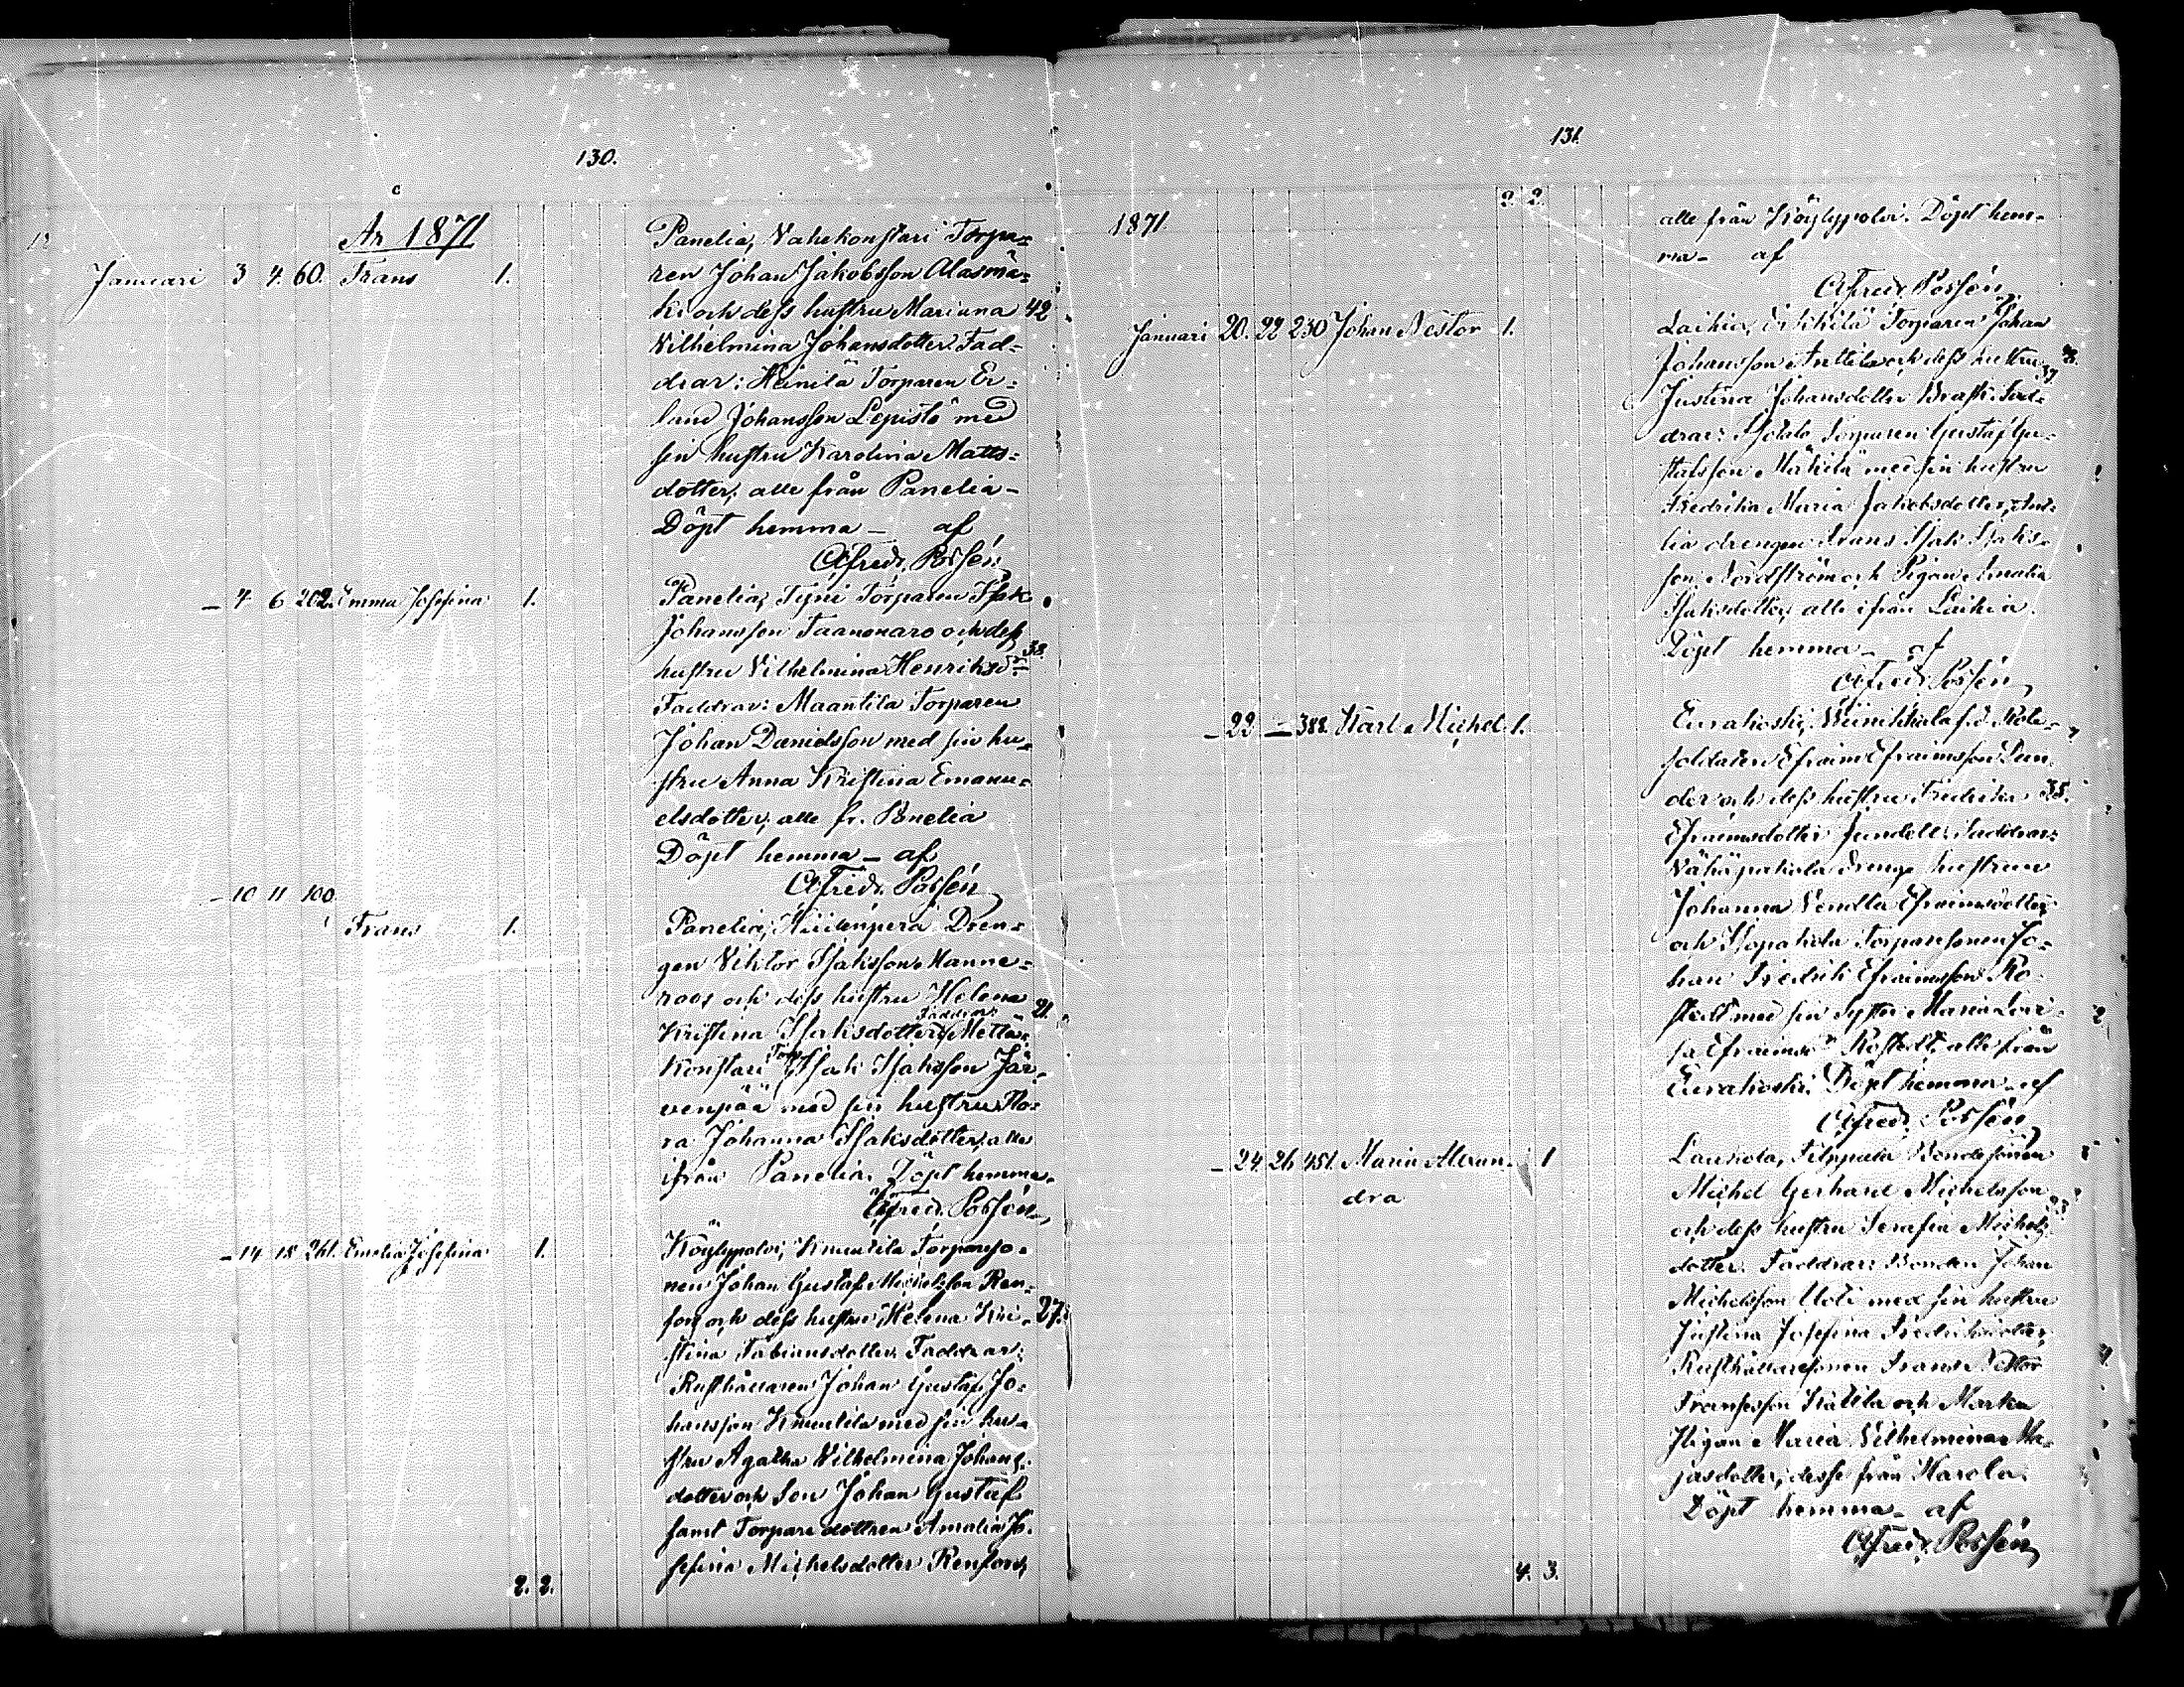 130.
År 1871
Januari 3 4. 60. Frans 1.
Panelia, Vahekonstari Torpa=
ren Johan Jakobsson Alasmä=
ki och dess hustru Marianna 42
Vilhelmina Johansdotter. Fad=
drar: Heinilä Torparen Er=
land Johansson Lepistö med
sin hustru Karolina Matts=
dotter, alle från Panelia –
Döpt hemma – af
Alfred Possén
– 4 6 202. Emma Josefina 1.
Panelia, Tyni Torparen Isak
Johansson Taanonaro och dess
hustru Vilhelmina Henriksdr 38.
Faddrar: Maantila Torparen
Johan Danielsson med sin hu=
stru Anna Kristina Emanu=
elsdotter, alle fr. Pnelia
Döpt hemma – af
Alfred Possén
– 10 11 100.
Frans 1.
Panelia, Hiidenperä Dren=
gen Viktor Isaksson Manne=
roos och dess hustru Helena 21.
Kristina Isaksdotter, Faddrar Mettä=
Konstari Torp. Isak Isaksson Jär=
venpää med sin hustru Flo=
ra Johanna Isaksdotter, alle
ifrån Panelia. Döpt hemma.
Alfred Possén
– 14 18 261. Emelia Josefina 1.
Köylypolvi, Knuutila Torpareso=
nen Johan Gustaf Michelsson Ren=
fors och dess hustru Helena Kri= 27.
stina Fabiansdotter. Faddrar:
Rusthållaren Johan Gustaf Jo=
hansson Knuutila med sin hu=
stru Agatha Vilhelmina Johans=
dotter och Son Johan Gustaf
samt Torpare dottren Amalia Jo=
sefina Michelsdotter Renfors,
2. 2.
131.
1871.
2. 2.
alle från Köylypolvi. Döpt hem=
ma – af
Alfred Possén
Januari 20. 22 230 Johan Nestor 1.
Laihia, Torparen Johan
Johansson Anttila och dess hustru 37.
Justina Johansdotter Brask. Fad=
drar: Torparen Gustaf Gu=
stafsson Mäkilä med sin hustru
Fredrika Maria Jakobsdotter,
drengen Frans Isak Isaks=
son Nordström och Pigan Amalia
Isaksdotter, alle ifrån Laihia.
Döpt hemma – af
Alfred Possén
– 22 – 388. Karl Michel 1.
Eurakoski, f.d. Rote=
soldaten Efraim Efraimsson
och dess hustru Fredrika 35.
Efraimsdotter Jundell. Faddrar:
drengs hustrun
Johanna Vendla Efraimsdotter
och Isopahola Torparesonen Jo=
han Fredrik Efraimsson Ro=
stedt med sin Syster Maria Lovi=
sa Efraimsdr Rostedt, alle från
Eurakoski. Döpt hemma – af
Alfred Possén
– 24. 26 451. Maria Alexan= 1
dra
Laukola, Bondesonen
Michel Gerhard Michelsson
och dess hustru Serafia Michels=
dotter. Faddrar: Bonden Johan
Michelsson Uoti med sin hustru
Justina Josefina Fredriksdotter,
Rusthållaresonen Frans Viktor
Fransson Kättilä och
Pigan Maria Vilhelmina Ma=
jasdotter, desse från Harola.
Döpt hemma – af
Alfred Possén
4. 3.